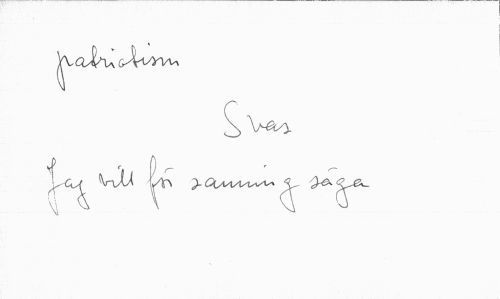 patriotism
Svar
Jag vill för sanning säga